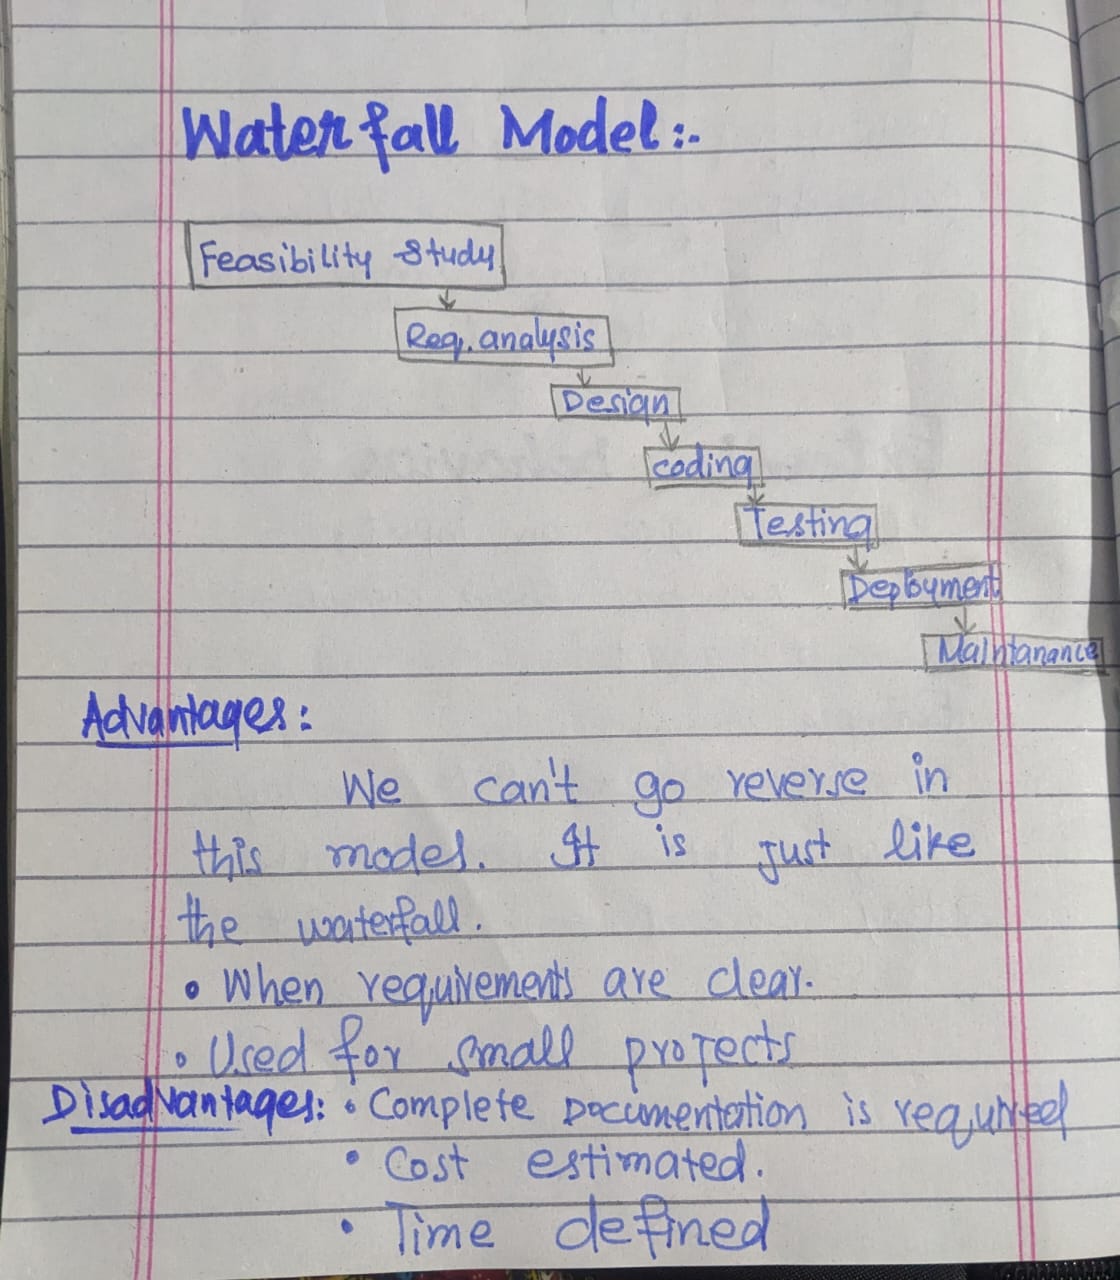 Waterfall Model :-
Feasibility Study
Req. analysis
Design
coding
Testing
Deployment
Maintanance
Advantages :
We can't go reverse in
this model. It is just like
the waterfall.
• When requirements are clear.
• Used for small projects
Disadvantages: • Complete Documentation is required
• Cost estimated.
• Time defined